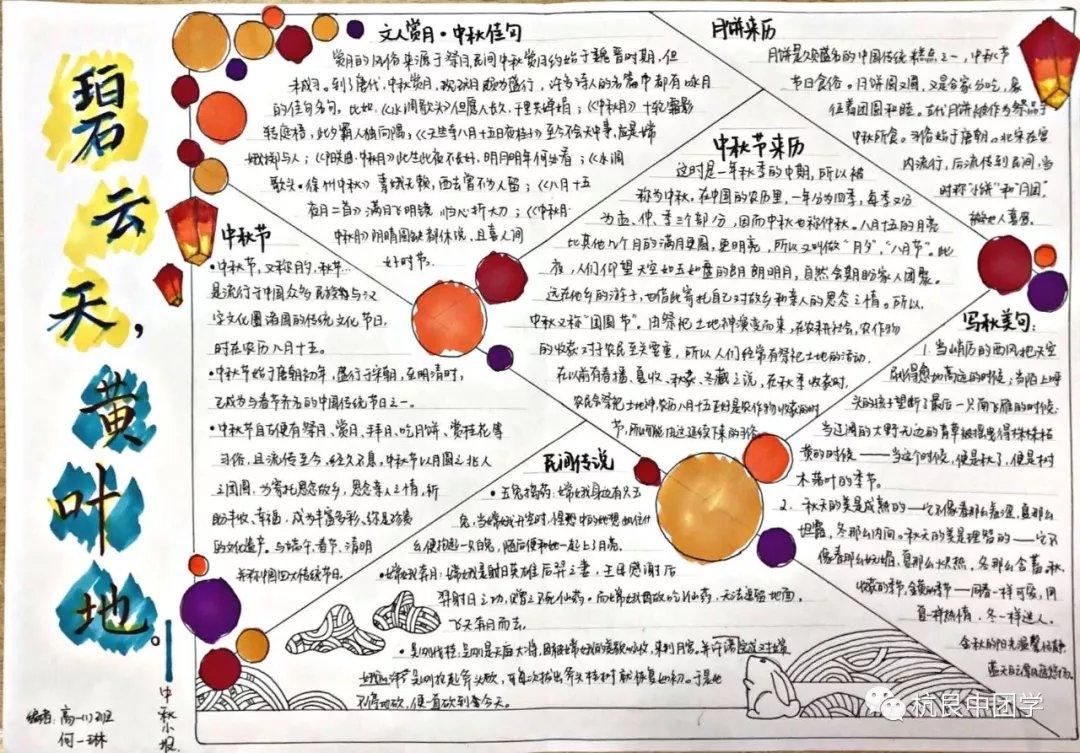 碧云天，
黄叶地。
中秋小报
编者：高一(1)班
何一琳
文人赏月·中秋佳句
赏月的风俗来源于祭月，民间中秋赏月约始于魏晋时期，但
未成习。到了唐代，中秋赏月、玩月颇为盛行，许多诗人的名篇中都有咏月
的佳句名句，比如：《水调歌头》但愿人长久，千里共婵娟；《中秋月》十轮霜影
转庭梧，此夕羁人独向隅；《天竺寺八月十五日夜桂子》至今不会天中事，应是嫦
娥掷与人；《阳关曲·中秋月》此生此夜不长好，明月明年何处看；《水调
歌头·徐州中秋》素娥无赖，西去曾不为人留；《八月十五
夜月二首》满目飞明镜，归心折大刀；《中秋月·
中秋月》阴晴圆缺都休说，且喜人间
好时节。
月饼来历
月饼是久负盛名的中国传统糕点之一，中秋节
节日食俗。月饼圆又圆，又是合家分吃，象
征着团圆和睦。古代月饼被作为祭品于
中秋所食。习俗始于唐朝。北宋在宫
内流行，后流传到民间，当
时称“小饼”和“月团”，
中秋节来历
这时是一年秋季的中期，所以被
称为中秋。在中国的农历里，一年分为四季，每季又分
为孟、仲、季三个部分，因而中秋也称仲秋。八月十五的月亮
比其他几个月的满月更圆，更明亮，所以又叫做“月夕”，“八月节”。此
夜，人们仰望天空如玉如盘的朗朗明月，自然会期盼家人团聚。
远在他乡的游子，也借此寄托自己对故乡和亲人的思念之情。所以，
中秋又称“团圆节”。由祭祀土地神演变而来，在农耕社会，农作物
的收获对于农民至关重要，所以人们经常有祭祀土地的活动，
在以前有春播、夏收、秋获、冬藏之说，在秋季收获时，
农民会祭祀土地神，农历八月十五正好是农作物收获的时
节，所以可能由这延续下来的习俗
中秋节
•中秋节，又称月夕，秋节…
是流行于中国众多民族与汉
字文化圈诸国的传统文化节日，
时在农历八月十五。
•中秋节始于唐朝初年，盛行于宋朝，至明清时，
已成为与春节齐名的中国传统节日之一。
•中秋节自古便有祭月、赏月、拜月、吃月饼、赏桂花等
习俗，且流传至今，经久不息，中秋节以月圆之兆人
之团圆，为寄托思念故乡，思念亲人之情，祈
盼丰收、幸福，成为丰富多彩、弥足珍贵
的文化遗产。与端午、春节、清明
并称中国四大传统节日。
民间传说
•玉兔捣药：嫦娥身边有只玉
兔，
•嫦娥奔月：嫦娥是射日英雄后羿之妻，王母感谢后
羿射日之功，赐了不死仙药。而嫦娥偷吃了仙药，无法逗留地面，
飞天奔月而去。
吴刚抡起斧头砍，可每次拔出斧头桂树都恢复如初。于是他
不停地砍，便一直砍到至今天。
写秋美句：
1. 当峭厉的西风把天空
刷得愈加高远的时候；当陌上呼
头的孩子望断了最后一只南飞雁的时候；
当辽阔的大野无边的青草被摇曳得株株枯
黄的时候——当这个时候，便是秋了，便是树
木落叶的季节。
2. 秋天的美是成熟的——它不像春那么羞涩，夏那么
坦露，冬那么内向。秋天的美是理智的——它不
像春那么妩媚，夏那么火热，冬那么含蓄。秋，
收获的季节，金黄的季节——同春一样可爱，同
夏一样热情，冬一样迷人。
金秋的阳光温馨恬静，
杭良中团学